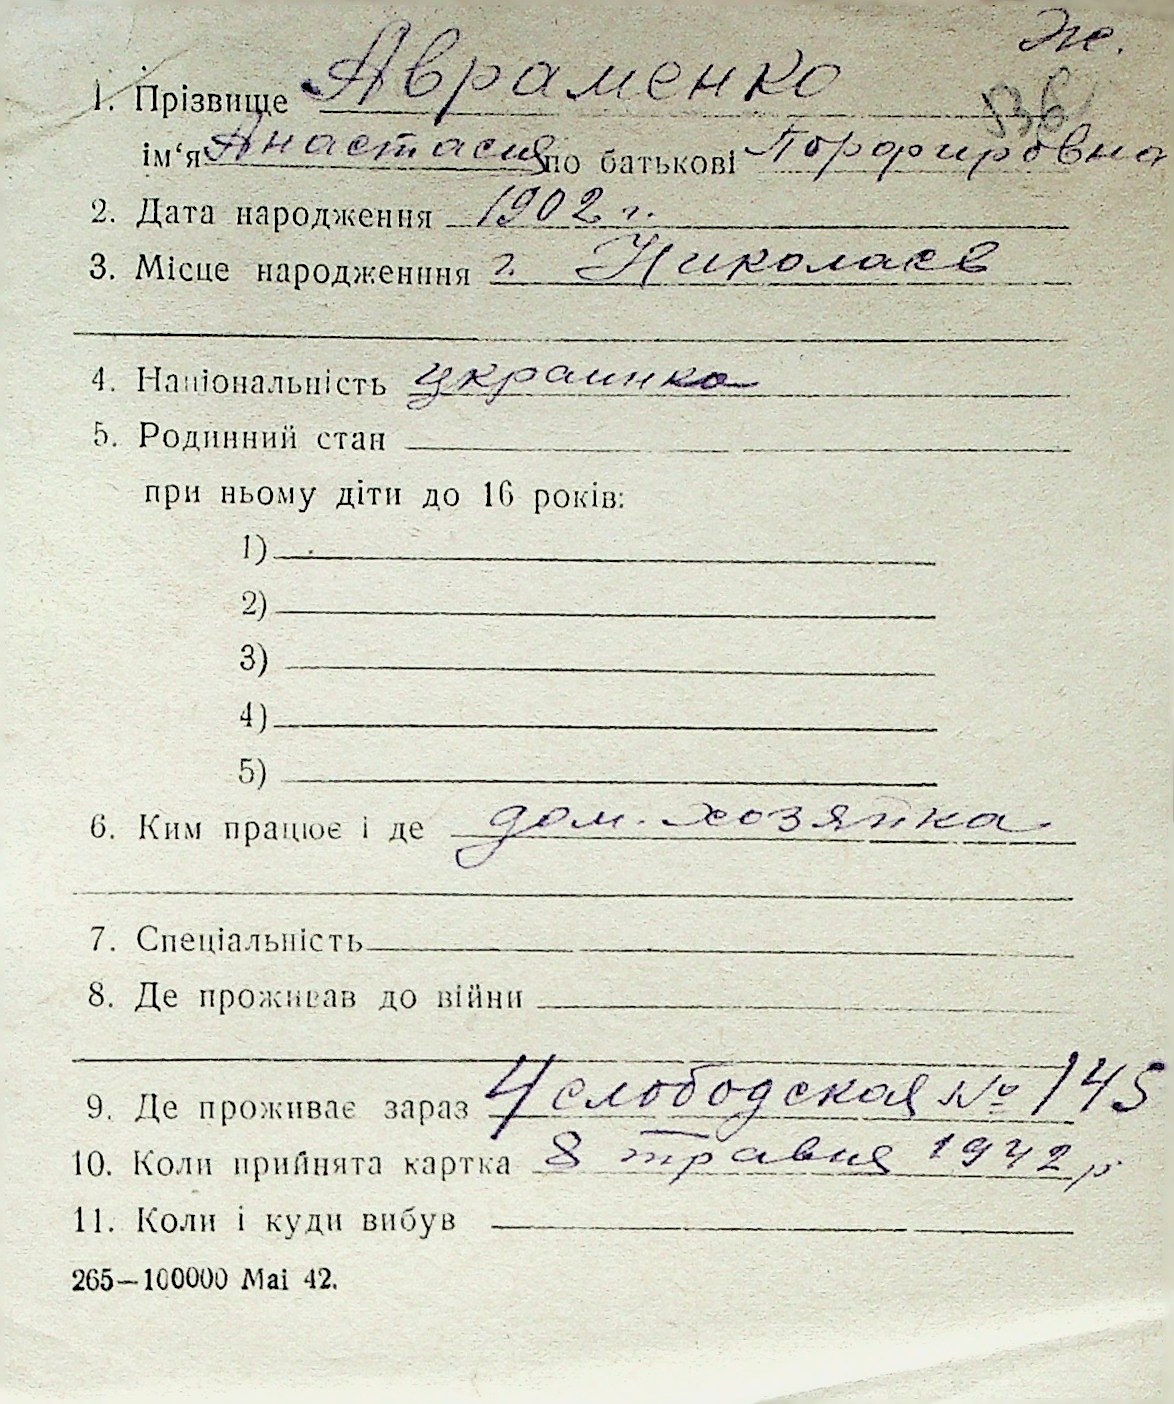 Ж.
1. Прізвище Авраменко
136
ім‘я Анастасия по батькові Порфировна
2. Дата народження 1902 г.
3. Місце народженння г. Николаев
4. Національність украинка
5. Родинний стан
при ньому діти до 16 років:
1)
2)
3)
4)
5)
6. Ким працює і де дом. хозяйка
7. Спеціальність
8. Де проживав до війни
9. Де проживає зараз 4 слободская № 145
10. Коли прийнята картка 8 травня 1942 р.
11. Коли і куди вибув
265—100000 Mai 42.